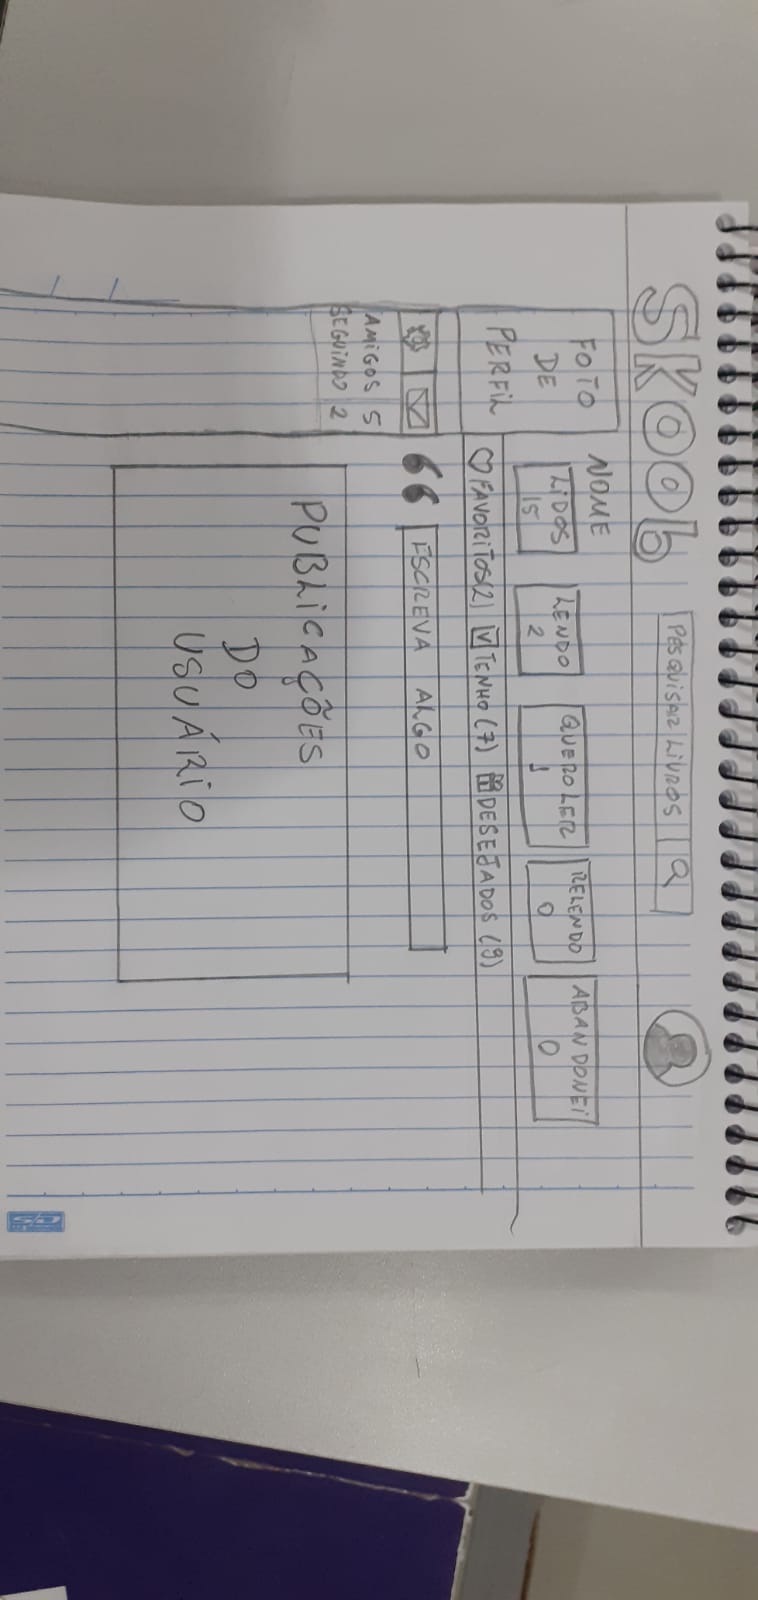 SKOOB
PESQUISAR LIVROS
FOTO
DE
PERFIL
NOME
LIDOS
15
LENDO
2
QUERO LER
1
RELENDO
0
ABANDONEI
0
FAVORITOS(2) TENHO (7) DESEJADOS (9)
66 ESCREVA ALGO
AMIGOS 5
SEGUINDO 2
PUBLICAÇÕES
DO
USUÁRIO